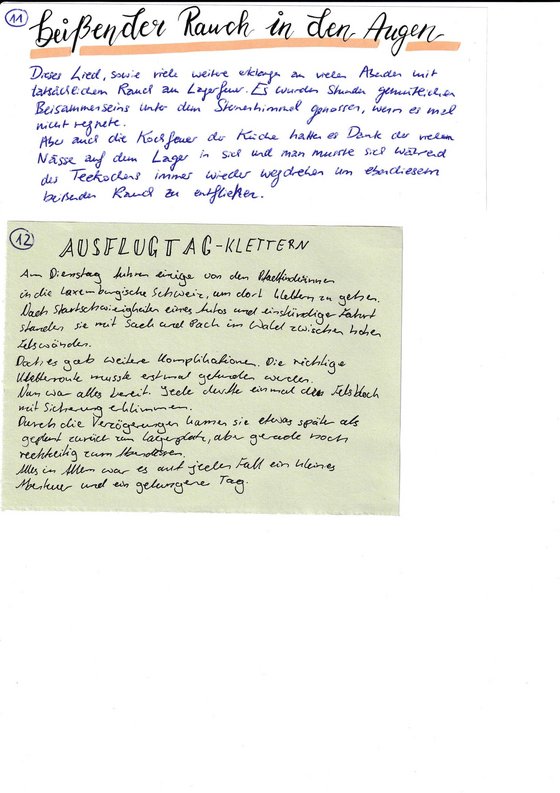 11
beißender Rauch in den Augen
Dieses Lied, sowie viele weitere erklangen an vielen Abenden mit
tatsächlichem Rauch am Lagerfeuer. Es wurden Stunden gemütlichen
Beisammenseins unter dem Sternenhimmel genossen, wenn es mal
nicht regnete.
Aber auch die Kochfeuer der Küche hatten es Dank der vielen
Nässe auf dem Lager in sich und man musste sich während
des Teekochens immer wieder wegdrehen um ebendiesem
beißenden Rauch zu entfließen.
12
AUSFLUGTAG-KLETTERN
Am Dienstag fuhren einige von den Pfadfinderinnen
in die Luxemburgische Schweiz, um dort klettern zu gehen.
Nach Startschwierigkeiten eines Autos und einstündiger Fahrt
standen sie mit Sack und Pack im Wald zwischen hohen
Felswänden.
Doch es gab weitere Komplikationen. Die richtige
Kletterroute musste erstmal gefunden werden.
Nun war alles bereit. Jede durfte einmal den Felsblock
mit Sicherung erklimmen.
Durch die Verzögerungen kamen sie etwas später als
geplant zurück zum Lagerplatz, aber gerade noch
rechtzeitig zum Abendessen.
Alles in Allem war es auf jeden Fall ein kleines
Abenteuer und ein gelungener Tag.